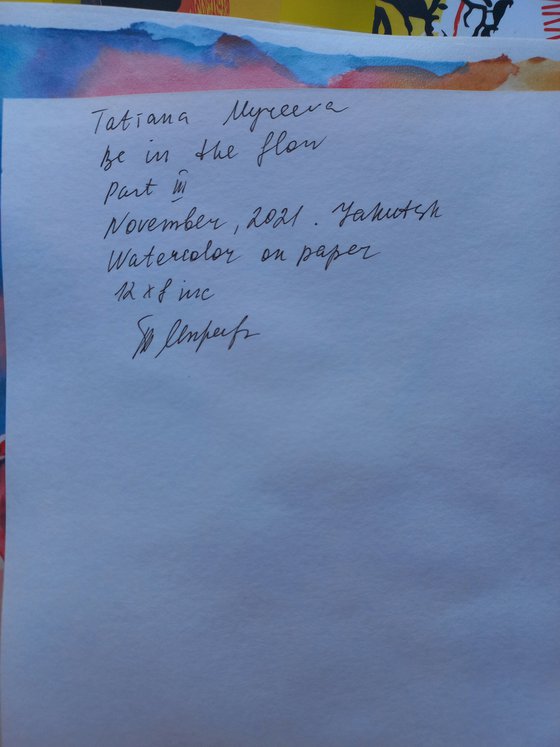 Tatiana Myreeva
Be in the flow
Part III
November, 2021. Yakutsk
Watercolor on paper
12 x 8 inc